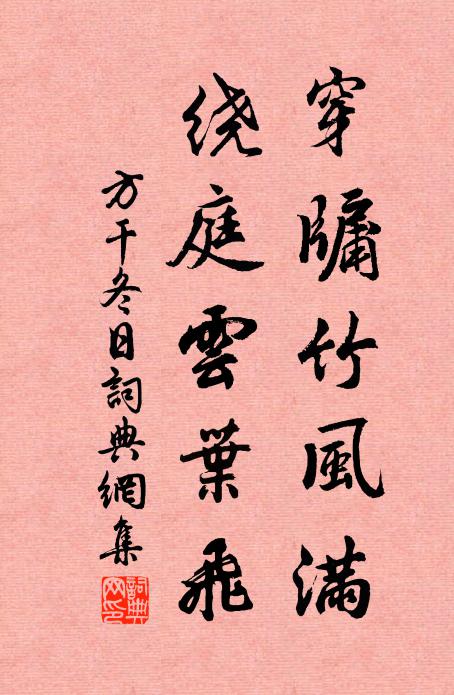 穿牖竹風满
绕庭雲葉飛
方干冬日詞典網集
詞典